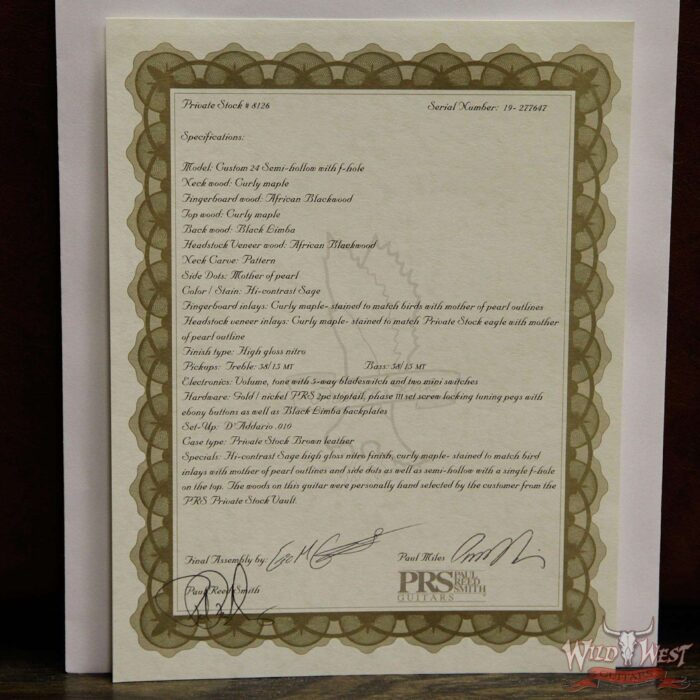 Private Stock # 8126 Serial Number: 19- 277647
Specifications:
Model: Custom 24 Semi-hollow with f-hole
Neck wood: Curly maple
Fingerboard wood: African Blackwood
Top wood: Curly maple
Back wood: Black Limba
Headstock Veneer wood: African Blackwood
Neck Carve: Pattern
Side Dots: Mother of pearl
Color / Stain: Hi-contrast Sage
Fingerboard inlays: Curly maple- stained to match birds with mother of pearl outlines
Headstock veneer inlays: Curly maple- stained to match Private Stock eagle with mother
of pearl outline
Finish type: High gloss nitro
Pickups: Treble: 58/15 MT Bass: 58/15 MT
Electronics: Volume, tone with 5-way bladeswitch and two mini switches
Hardware: Gold / nickel PRS 2pc stoptail, phase III set screw locking tuning pegs with
ebony buttons as well as Black Limba backplates
Set-Up: D'Addario .010
Case type: Private Stock Brown leather
Specials: Hi-contrast Sage high gloss nitro finish, curly maple- stained to match bird
inlays with mother of pearl outlines and side dots as well as semi-hollow with a single f-hole
on the top. The woods on this guitar were personally hand selected by the customer from the
PRS Private Stock Vault.
Final Assembly by: Paul Miles
Paul Reed Smith
PRS PAUL REED SMITH
GUITARS
WILD WEST
GUITARS